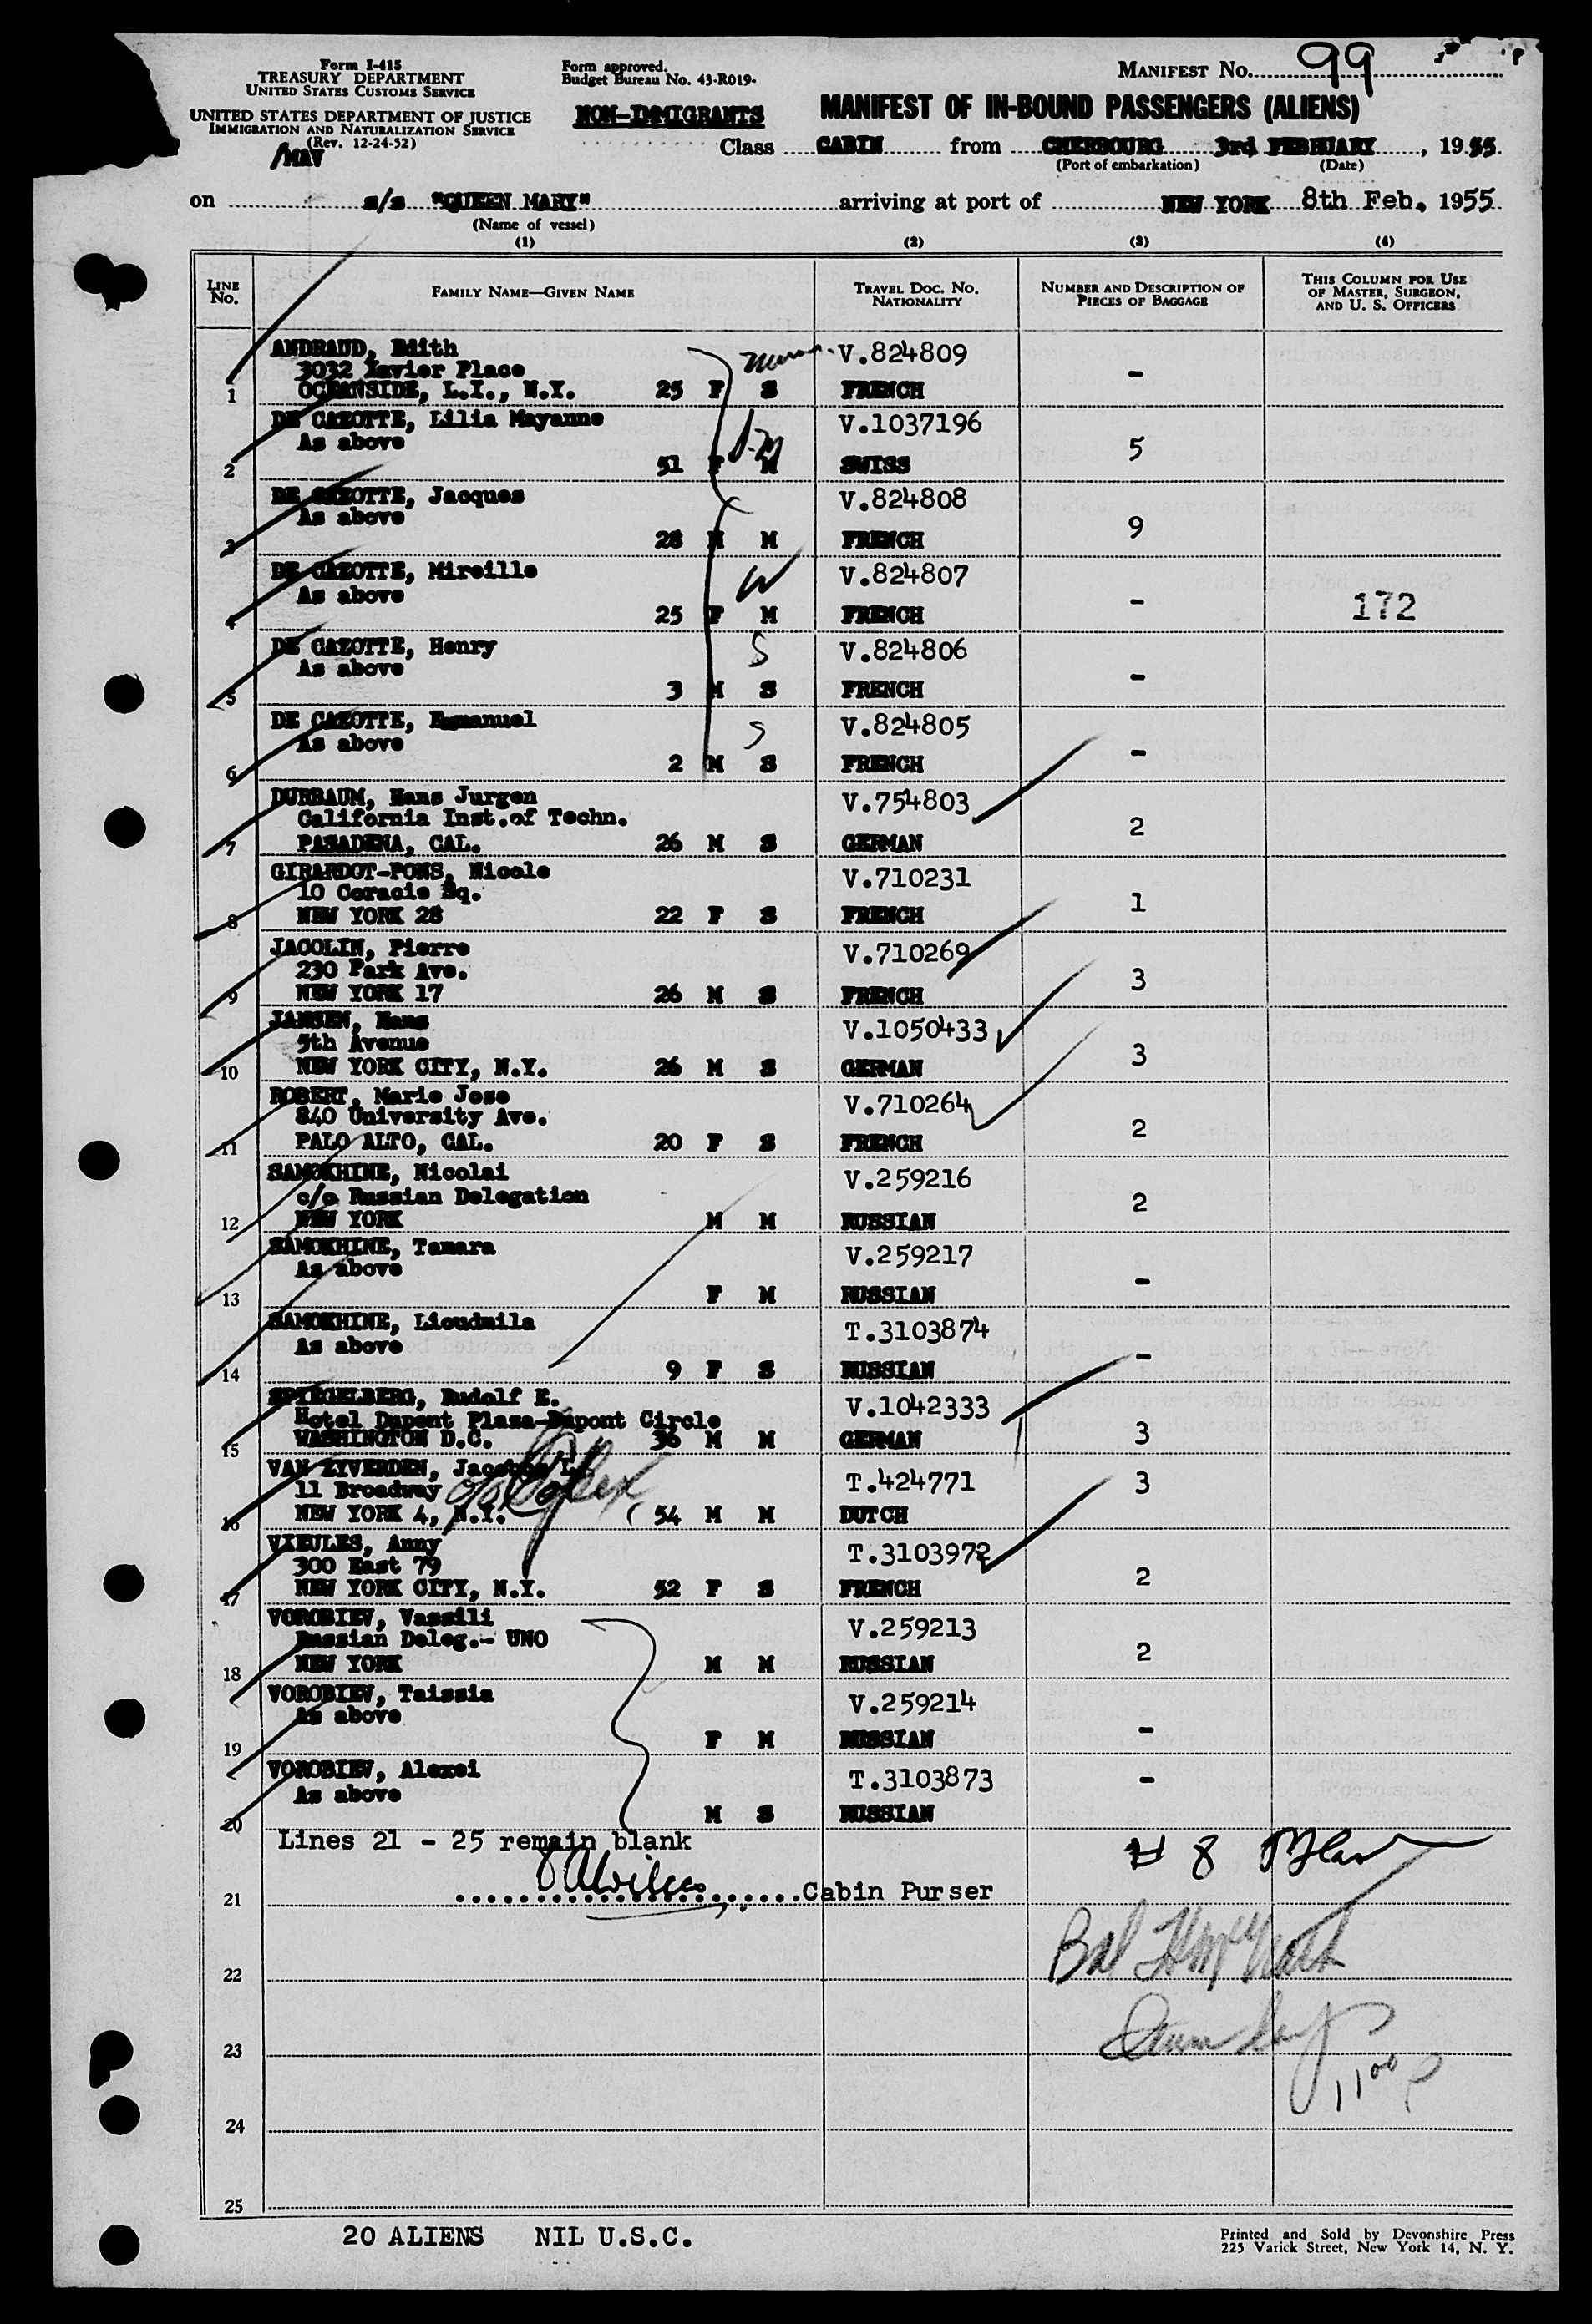 Form I-415
TREASURY DEPARTMENT
UNITED STATES CUSTOMS SERVICE
UNITED STATES DEPARTMENT OF JUSTICE
IMMIGRATION AND NATURALIZATION SERVICE
(Rev. 12-24-52)
/MAV
Form approved.
Budget Bureau No. 43-R019-
NON-IMMIGRANTS
MANIFEST No. 99
MANIFEST OF IN-BOUND PASSENGERS (ALIENS)
Class CABIN from CHERBOURG 3rd FEBRUARY, 1955
(Port of embarkation) (Date)
on s/s "QUEEN MARY" arriving at port of NEW YORK 8th Feb. 1955
(Name of vessel)
(1) (2) (3) (4)
LINE No. FAMILY NAME—GIVEN NAME TRAVEL DOC. No. NATIONALITY NUMBER AND DESCRIPTION OF PIECES OF BAGGAGE THIS COLUMN FOR USE OF MASTER, SURGEON, AND U. S. OFFICERS
ANDRAUD, Edith V.824809
3032 Xavier Place -
1 OCEANSIDE, L.I., N.Y. 25 F S FRENCH
DE CAZOTTE, Lilia Mayanne V.1037196
As above 5
2 51 F M SWISS
DE CAZOTTE, Jacques V.824808
As above 9
3 28 M M FRENCH
DE CAZOTTE, Mireille V.824807
As above - 172
4 25 F M FRENCH
DE CAZOTTE, Henry S V.824806
As above -
5 3 M S FRENCH
DE CAZOTTE, Emmanuel S V.824805
As above -
6 2 M S FRENCH
DURBAUM, Hans Jurgen V.754803
California Inst.of Techn. 2
7 PASADENA, CAL. 26 M S GERMAN
GIRARDOT-PONS, Nicole V.710231
10 Coracie Sq. 1
8 NEW YORK 28 22 F S FRENCH
JACOLIN, Pierre V.710269
230 Park Ave. 3
9 NEW YORK 17 26 M S FRENCH
JANSEN, Hans V.1050433
5th Avenue 3
10 NEW YORK CITY, N.Y. 26 M S GERMAN
ROBERT, Marie Jose V.710264
840 University Ave. 2
11 PALO ALTO, CAL. 20 F S FRENCH
SAMOKHINE, Nicolai V.259216
c/o Russian Delegation 2
12 NEW YORK M M RUSSIAN
SAMOKHINE, Tamara V.259217
As above -
13 F M RUSSIAN
SAMOKHINE, Lioudmila T.3103874
As above -
14 9 F S RUSSIAN
SPIEGELBERG, Rudolf E. V.1042333
Hotel Dupont Plaza-Dupont Circle
15 WASHINGTON D.C. 36 M M GERMAN 3
VAN ZYVERDEN, T.424771 3
11 Broadway
16 NEW YORK 4, N.Y. 54 M M DUTCH
VIEULES, Anny T.3103972
300 East 79 2
17 NEW YORK CITY, N.Y. 52 F S FRENCH
VOROBIEV, Vassili V.259213
Russian Deleg.- UNO 2
18 NEW YORK M M RUSSIAN
VOROBIEV, Taissia V.259214
As above -
19 F M RUSSIAN
VOROBIEV, Alexei T.3103873
As above -
20 M S RUSSIAN
Lines 21 - 25 remain blank # 8
21 Cabin Purser
22
23
1100
24
25
20 ALIENS NIL U.S.C.
Printed and Sold by Devonshire Press
225 Varick Street, New York 14, N. Y.